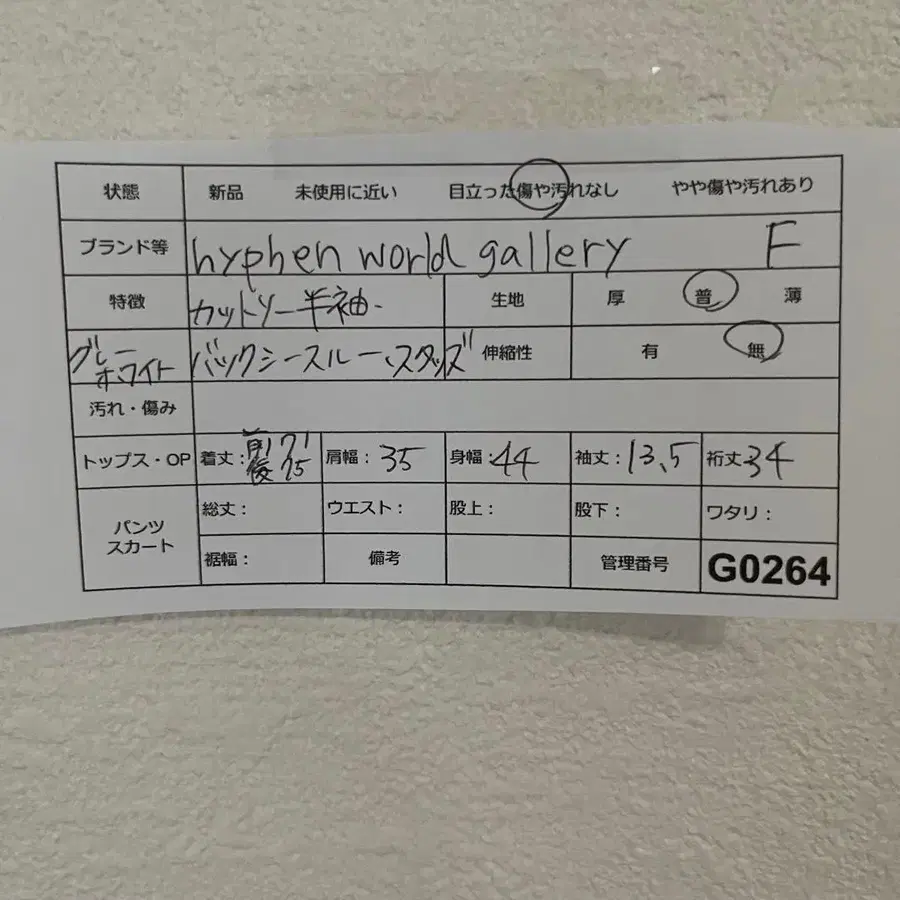 状態 新品 未使用に近い 目立った傷や汚れなし やや傷や汚れあり
ブランド等 hyphen world gallery F
特徴 カットソー半袖 生地 厚 普 薄
グレー
ホワイト バックシースルー、スタッズ 伸縮性 有 無
汚れ・傷み
トップス・OP 着丈: 前71 肩幅: 35 身幅: 44 袖丈: 13.5 裄丈: 34
後75
パンツ
スカート 総丈: ウエスト: 股上: 股下: ワタリ:
裾幅: 備考 管理番号 G0264